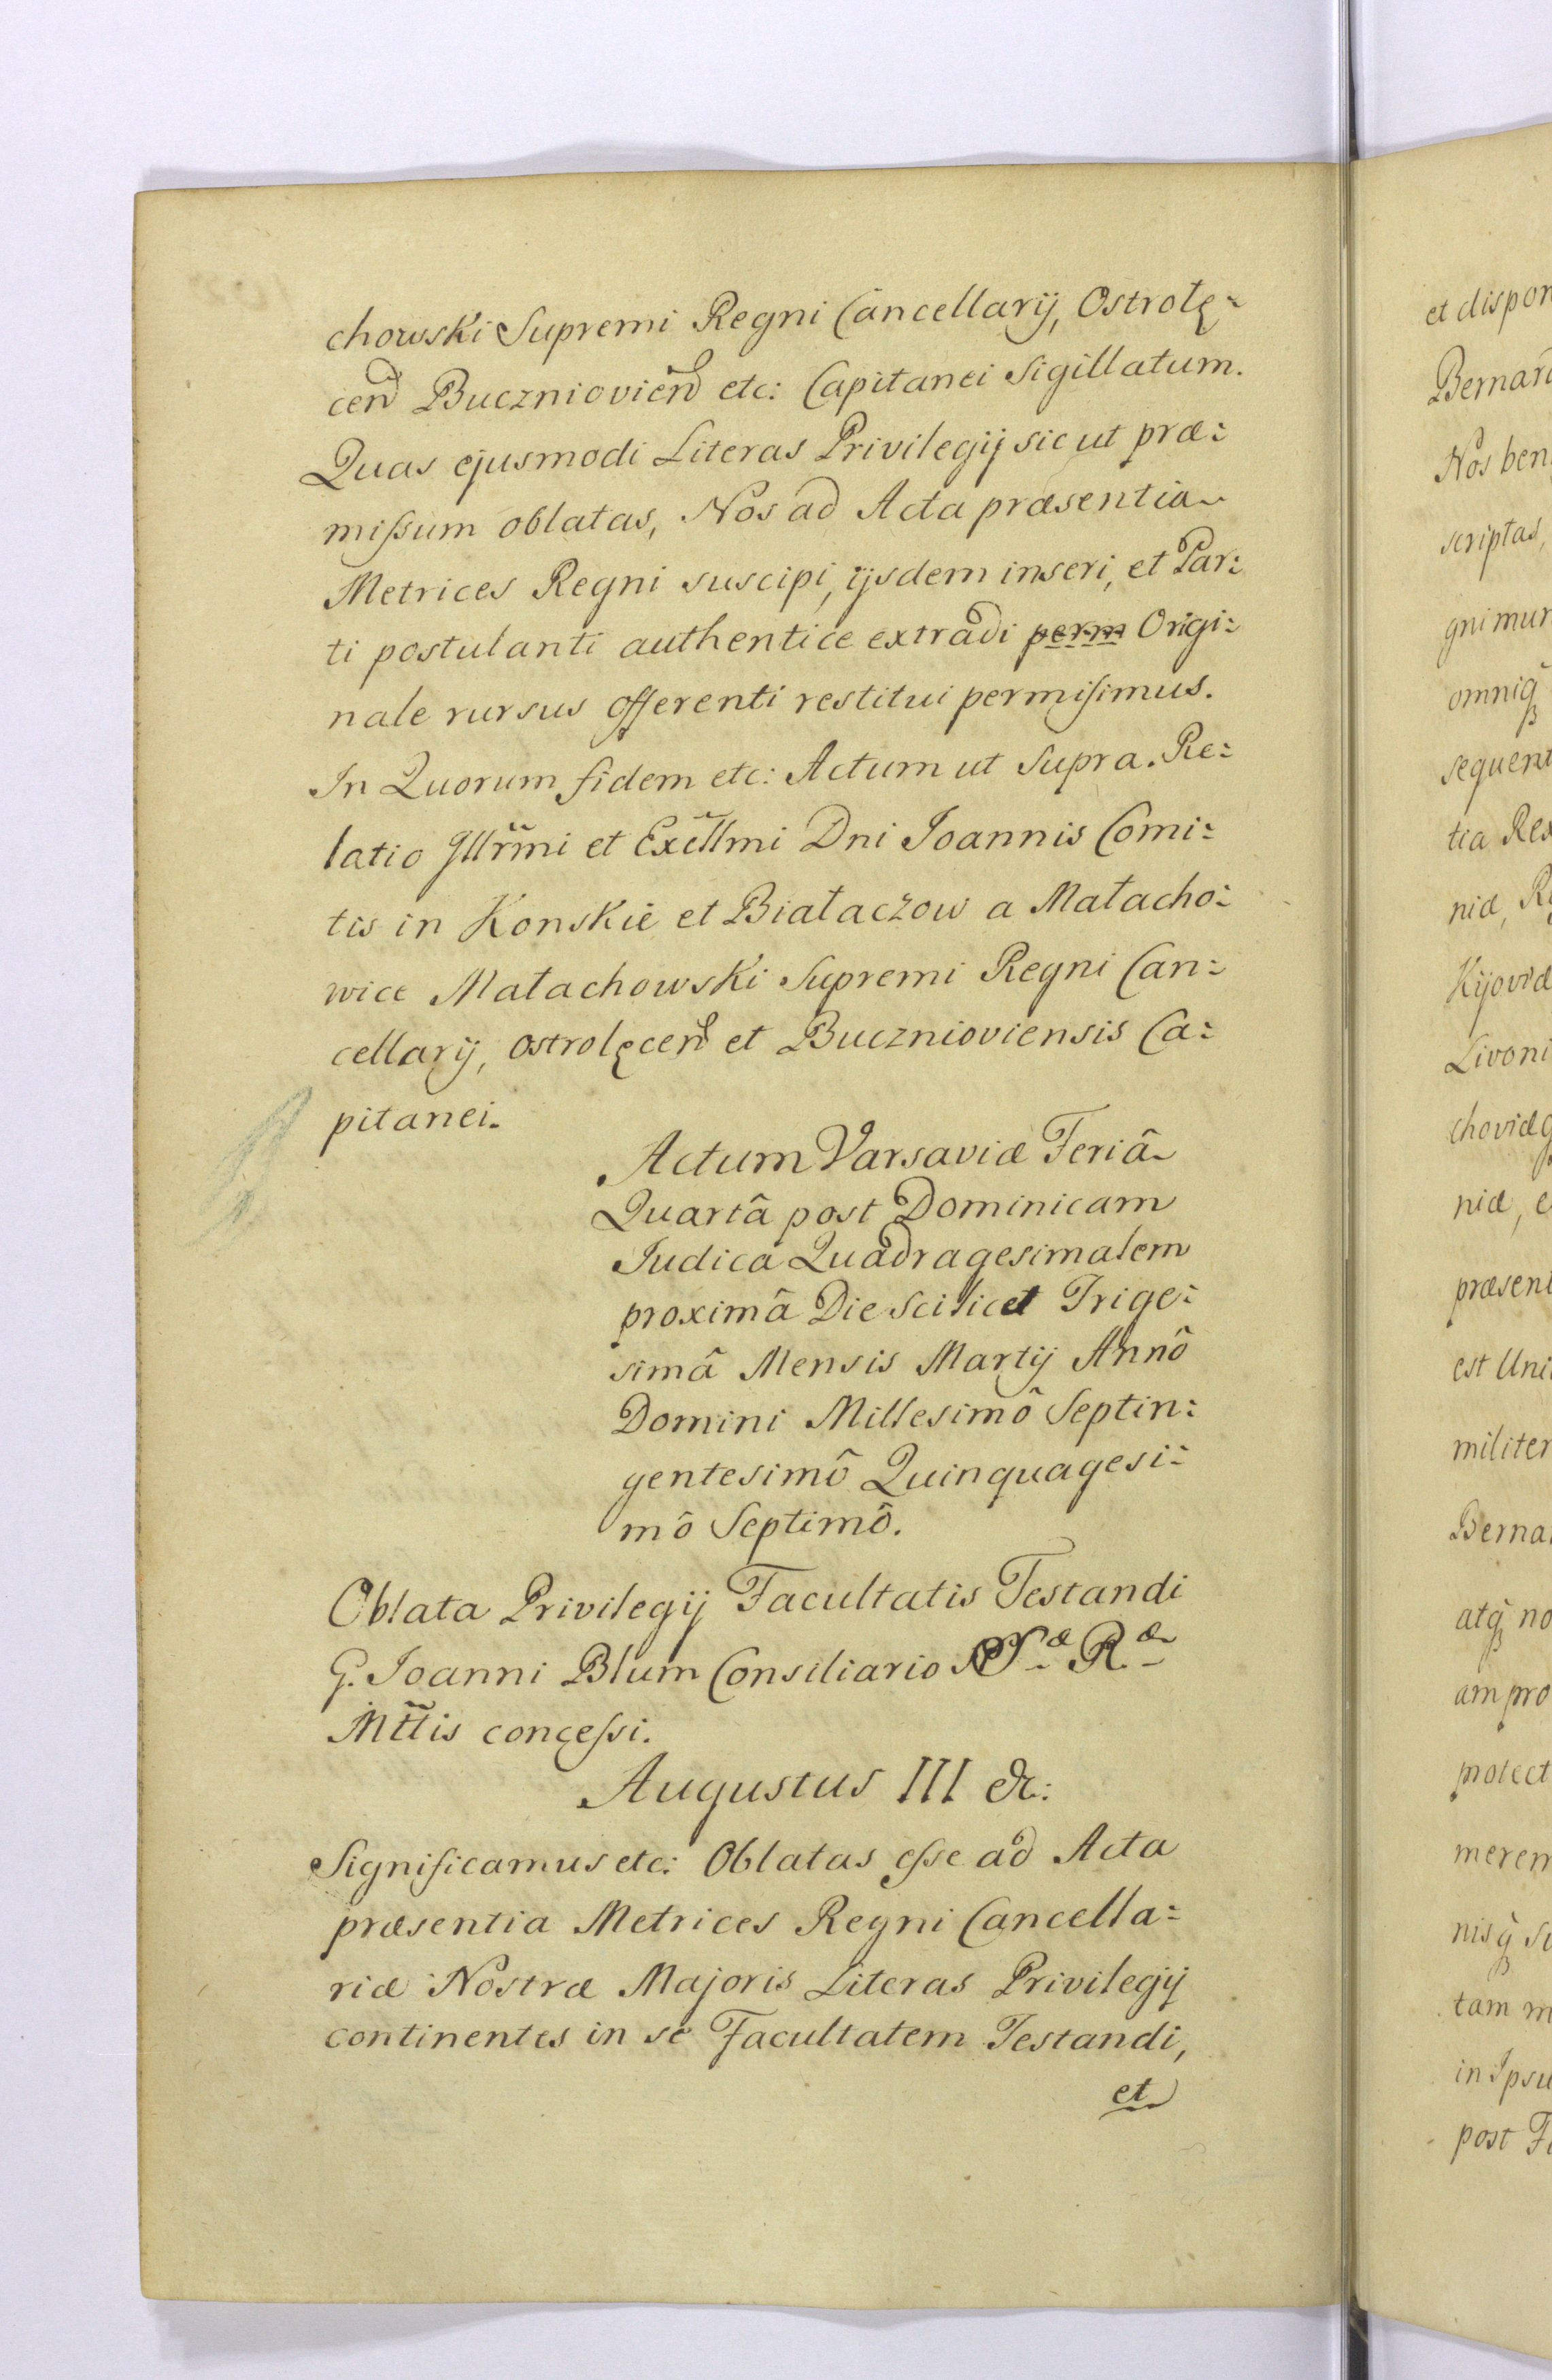 chowski Supremi Regni Cancellarij, Ostrołę=
cen̄ Bucznioviēn etc: Capitanei Sigillatum.
Quas ejusmodi Literas Privilegij sic ut præ=
mißum oblatas, Nos ad Acta præsentia
Metrices Regni suscipi, ijsdem inseri, et Par=
ti postulanti authentice extradi perm Origi=
nale rursus offerenti restitui permisimus.
In Quorum fidem etc: Actum ut Supra. Re=
latio Jllr̃mi et Excellm̃i Dni Joannis Comi=
tis in Konskie et Białaczow a Małacho=
wice Małachowski Supremi Regni Can=
cellarij, Ostrolęcen̄ et Buczniowiensis Ca=
pitanei.
Actum Varsaviæ Feriâ
Quartâ post Dominicam
Judica Quadragesimalem
proximâ Die Scilicet Trige=
simâ Mensis Martij Annô
Domini Millesimô Septin=
gentesimô Quinquagesi=
mô Septimô.
Oblata Privilegij Facultatis Testandi
G. Joanni Blum Consiliario Sæ Ræ
Mt̃tis conceßi.
Augustus III &c:
Significamus etc: Oblatas eße ad Acta
præsentia Metrices Regni Cancella=
riæ Nostræ Majoris Literas Privilegij
continentes in se Facultatem Testandi,
et
et dispon
Bernar
Nos ben
scriptas,
gni mun
omniq̃
sequent
tia Rex
niæ, R
Kijoviæ
Livoni
choviæq
niæ, e
præsent
est Uni
militer
Berna
atq̃ no
am pro
protect
merem
nisq̃ su
tam m
in Ipsu
post F